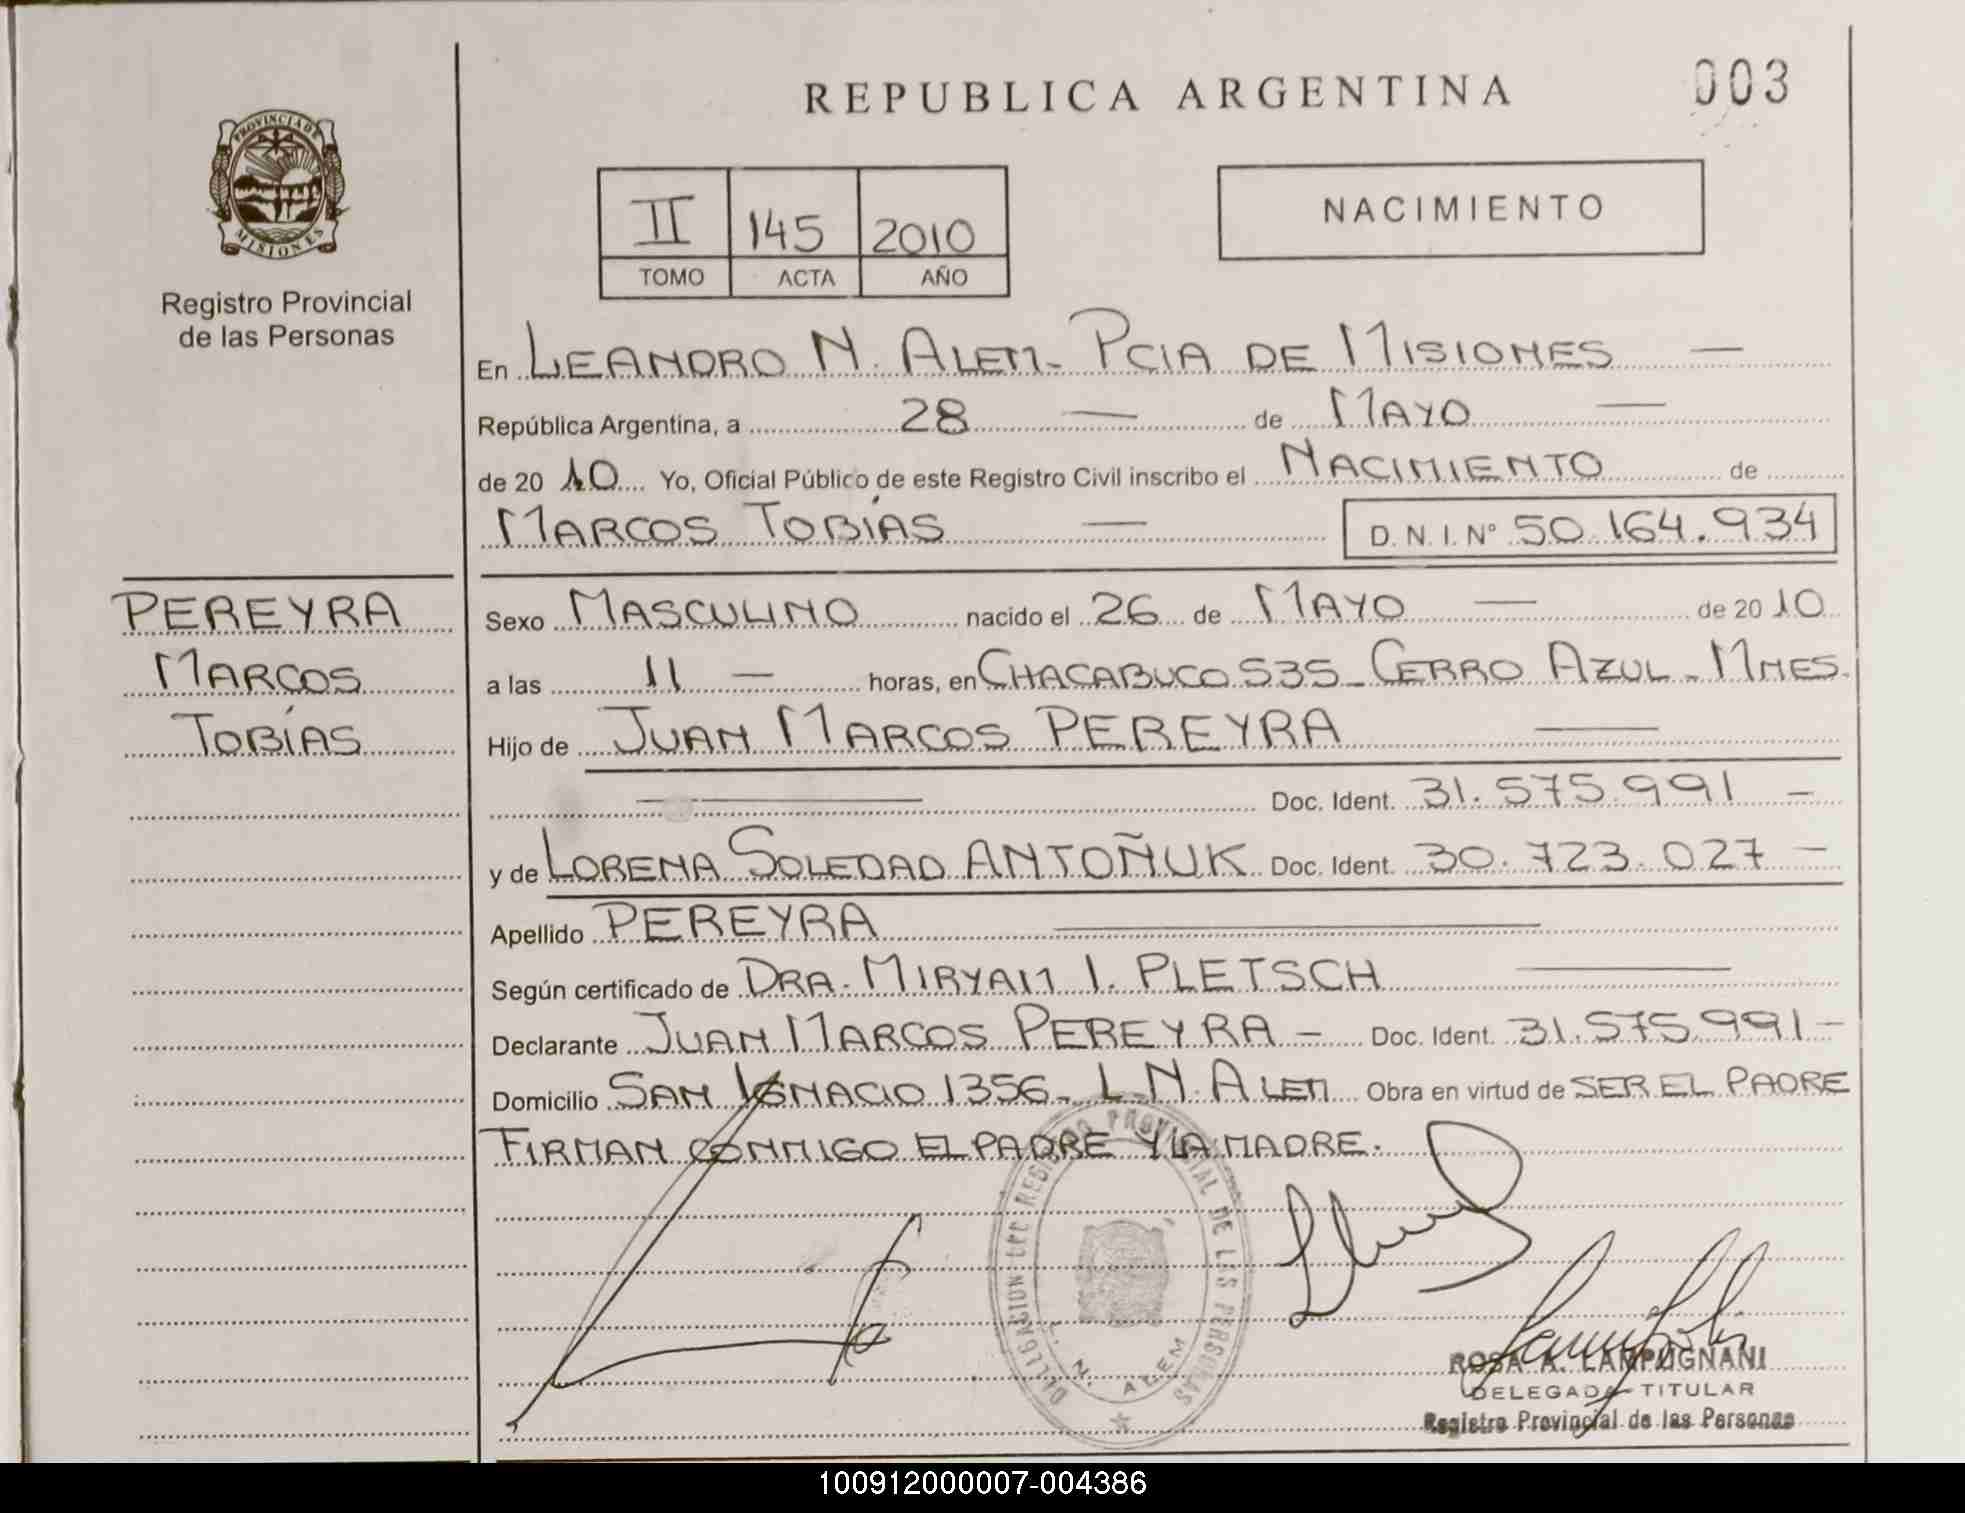 REPUBLICA ARGENTINA
003
PROVINCIA DE
MISIONES
Registro Provincial
de las Personas
II 145 2010
TOMO ACTA AÑO
NACIMIENTO
En LEANDRO N. ALEM - PCIA DE MISIONES —
República Argentina, a 28 — de MAYO —
de 20 10 Yo, Oficial Público de este Registro Civil inscribo el NACIMIENTO de
MARCOS TOBÍAS — D. N. I. Nº 50.164.934
PEREYRA
MARCOS
TOBÍAS
Sexo MASCULINO nacido el 26 de MAYO — de 20 10
a las 11 — horas, en CHACABUCO 535 - CERRO AZUL - MNES.
Hijo de JUAN MARCOS PEREYRA —
— Doc. Ident. 31.575.991 —
y de LORENA SOLEDAD ANTOÑUK Doc. Ident. 30.723.027 —
Apellido PEREYRA —
Según certificado de DRA. MIRYAM I. PLETSCH —
Declarante JUAN MARCOS PEREYRA — Doc. Ident. 31.575.991 —
Domicilio SAN IGNACIO 1356 - L. N. ALEM Obra en virtud de SER EL PADRE
FIRMAN CONMIGO EL PADRE Y LA MADRE.
REGISTRO PROVINCIAL DE LAS PERSONAS
DELEGACION
L. N. ALEM
ROSA A. LAMPUGNANI
DELEGADA TITULAR
Registro Provincial de las Personas
100912000007-004386